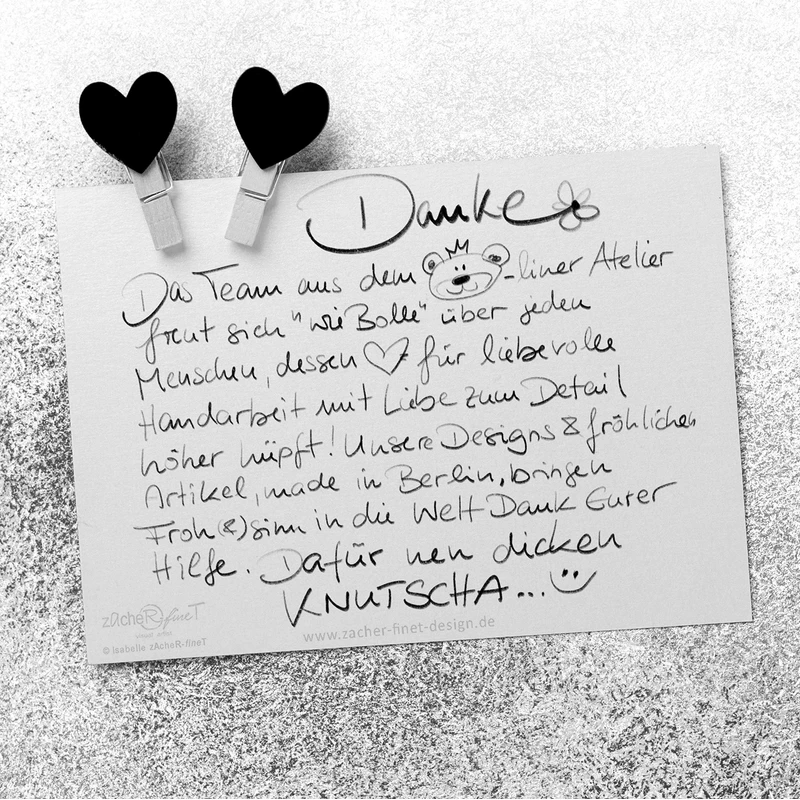 Danke
Das Team aus dem -liner Atelier
freut sich "wie Bolle" über jeden
Menschen, dessen ♡ für liebevolle
Handarbeit mit Liebe zum Detail
höher hüpft! Unsere Designs & fröhlichen
Artikel, made in Berlin, bringen
Froh(&)sinn in die Welt Dank Eurer
Hilfe. Dafür nen dicken
KNUTSCHA... :)
zAcheR-fineT
www.zacher-finet-design.de
© Isabelle zAcheR-fineT